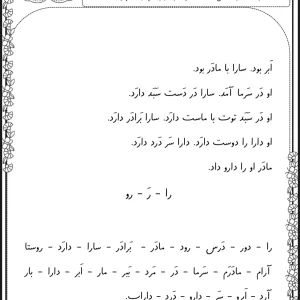 اَبر بود. سارا با مادَر بود.
او دَر سَرما آمَد. سارا دَر دَست سَبَد دارَد.
او دَر سَبَد توت با ماست دارَد. سارا بَرادَر دارَد.
او دارا را دوست دارَد. دارا سَر دَرد دارَد.
مادَر او را دارو داد.
را – رَ – رو
را – دور – دَرس – رود – مادَر – بَرادَر – سارا – دارَد – روستا
آرام – مادَرَم – سَرما – دَر – مَرد – تَبَر – مار – اَبر – دارا – بار
آرد – اَبرو – سَر – دارو – دَرد – داراب.